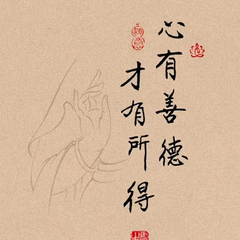 心有善德
才有所得